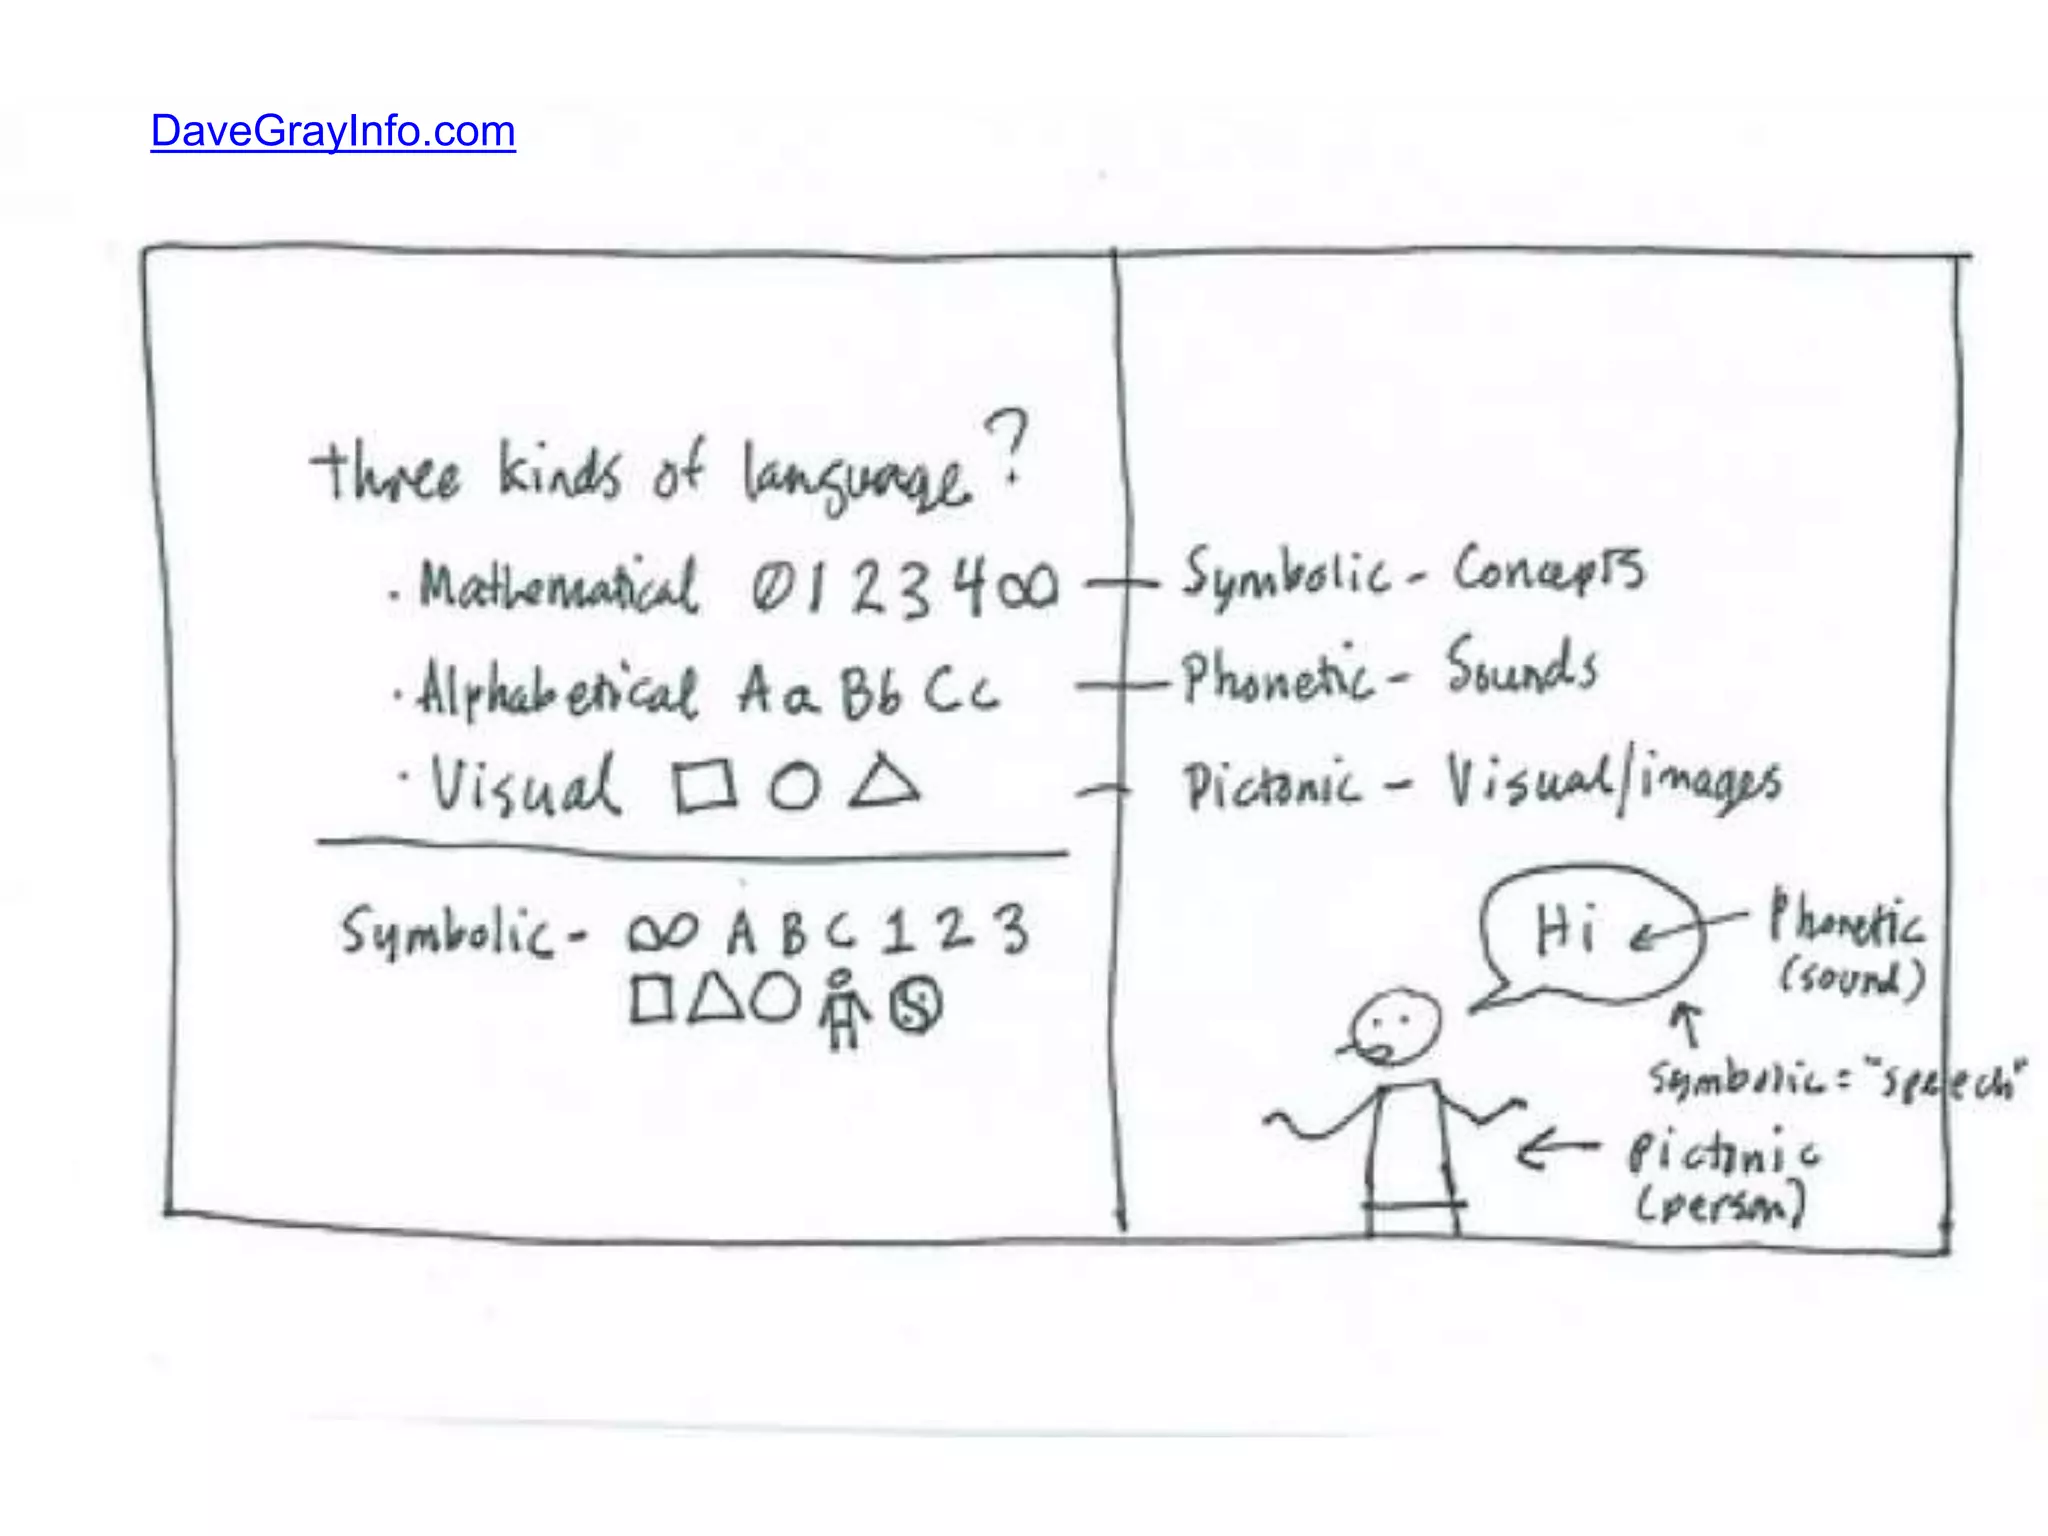 DaveGrayInfo.com
three kinds of language?
· Mathematical 0 1 2 3 4 ∞ — Symbolic - Concepts
· Alphabetical A a B b C c — Phonetic - Sounds
· Visual □ ○ △ - Pictonic - Visual/images
Symbolic - ∞ A B C 1 2 3
□ △ ○ S
Hi ← Phonetic
(sound)
Symbolic = "speech"
← Pictonic
(person)